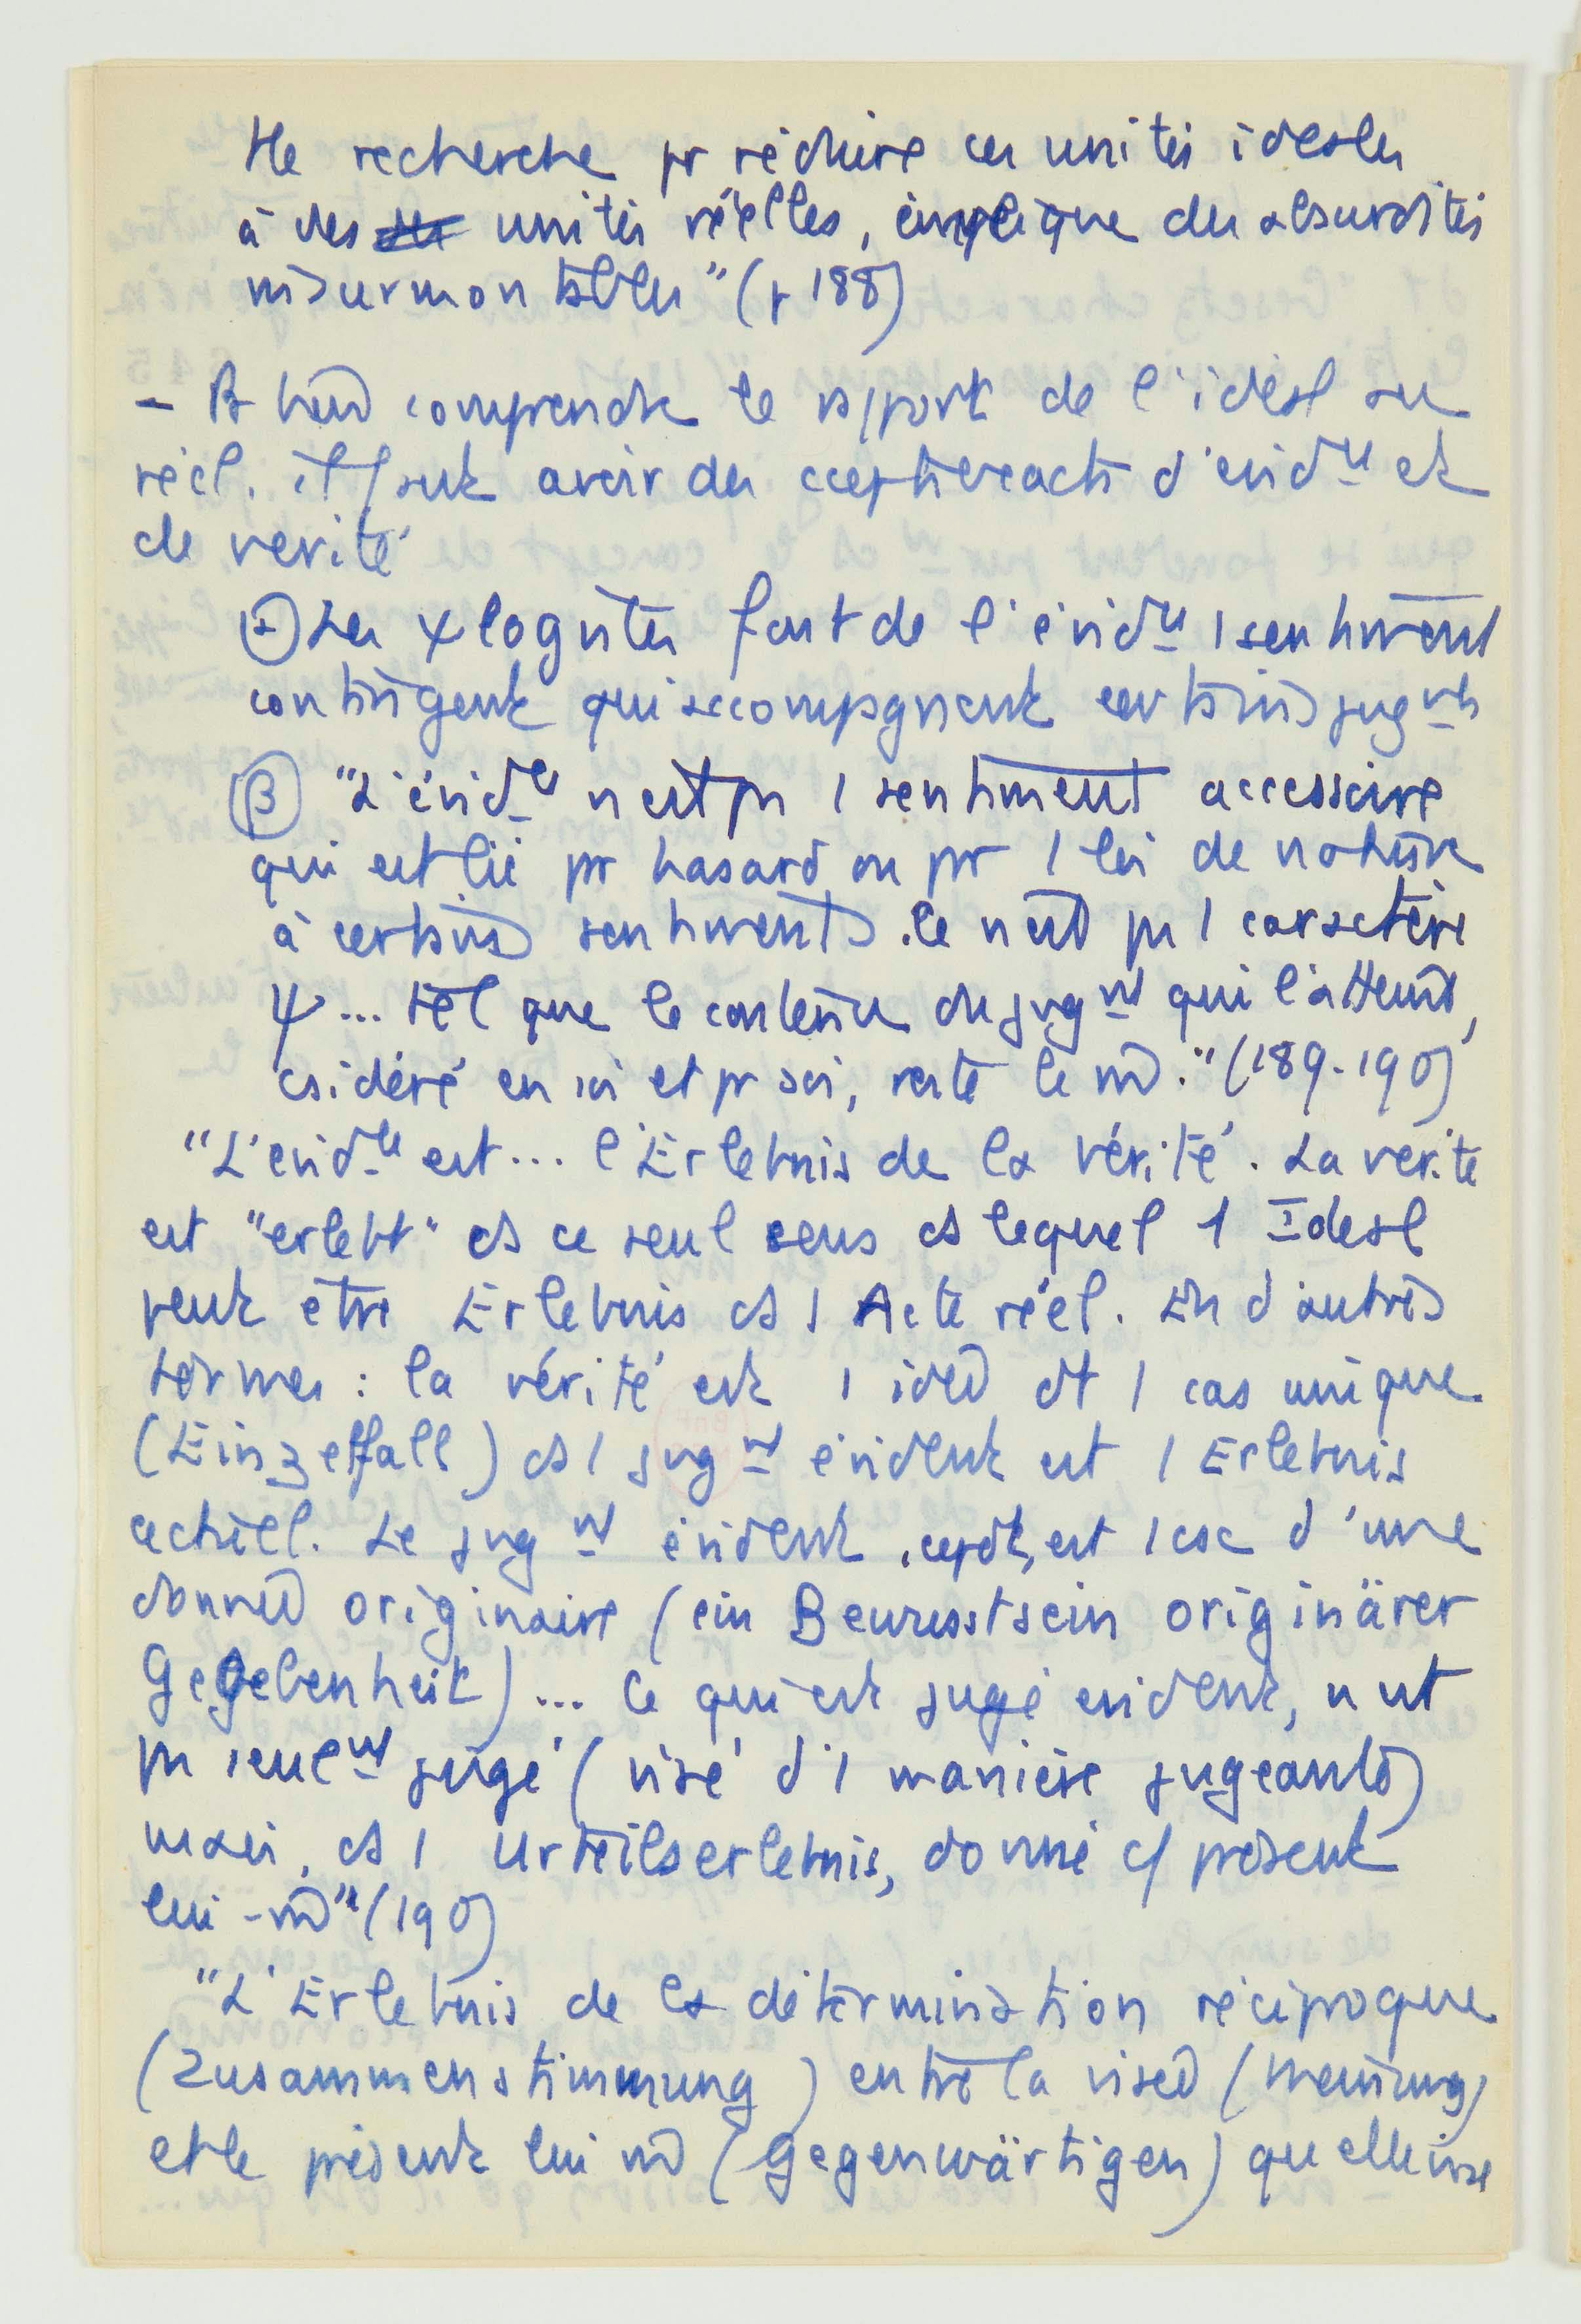 Tte recherche pr réduire ces unités idéales
à des unités réelles, implique des absurdités
insurmontables" (p 188)
- Pr bien comprendre le rapport de l'idéal au
réel, il faut avoir des ccepts exacts d'évidce et
de vérité
α Les ψlogistes font de l'évidce 1 sentiment
contingent qui accompagnent certains jugmts
β "L'évidce n'est pas 1 sentiment accessoire
qui est lié par hasard ou par 1 loi de nature
à certains sentiments. Ce n'est pas 1 caractère
ψ... tel que le contenu du jugmt qui l'atteint,
csidéré en soi et pr soi, reste le m̂." (189-190)
"L'évidce est... l'Erlebnis de la vérité. La vérité
est "erlebt" ds ce seul sens ds lequel 1 Idéal
peut être Erlebnis ds 1 Acte réel. En d'autres
termes : la vérité est 1 idée dt 1 cas unique
(Einzelfall) ds 1 jugmt évident est 1 Erlebnis
actuel. Le jugmt évident, cepdt, est 1 csc d'une
donnée originaire (ein Bewusstsein originärer
Gegebenheit)... Ce qui est jugé évident, n'est
pas seulmt jugé (visé d'1 manière jugeante)
mais, ds 1 Urteilserlebnis, donné c/ présent
lui-m̂" (190)
"L'Erlebnis de la détermination réciproque
(Zusammenstimmung) entre la visée (Meinung)
et le présent lui m̂ (Gegenwärtigen) qu'elle vise